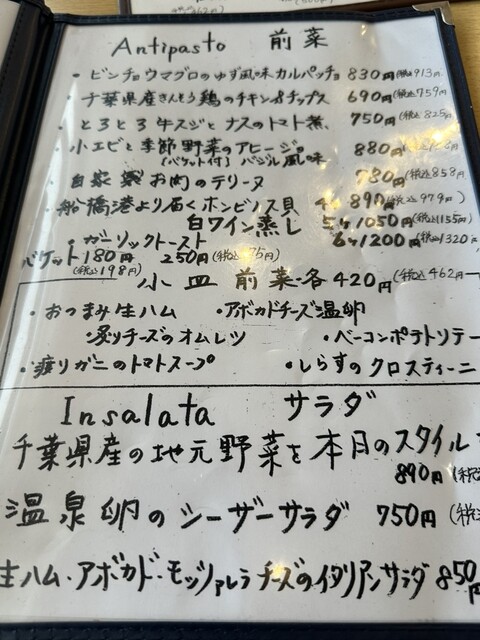 Antipasto 前菜
・ビンチョウマグロのゆず風味カルパッチョ 830円(税込913円
・千葉県産さんとう鶏のチキン&チップス 690円(税込759円
・とろとろ牛スジとナスのトマト煮 750円(税込825円
・小エビと季節野菜のアヒージョ 880円
(バケット付) バジル風味
・自家製お肉のテリーヌ 780円(税込858円
・船橋港より届くホンビノス貝 890円(税込979円)
白ワイン蒸し 5ヶ1050円(税込1155円)
ガーリックトースト 6ヶ1200円(税込1320円
バケット180円 250円(税込275円)
(税込198円)
小皿前菜 各420円(税込462円
・おつまみ生ハム ・アボカドチーズ温卵
・炙りチーズのオムレツ ・ベーコンポテトリテー
・渡りガニのトマトスープ ・しらすのクロスティーニ
Insalata サラダ
千葉県産の地元野菜を本日のスタイル
890円(税込
温泉卵のシーザーサラダ 750円(税込
生ハム・アボカド・モッツァレラチーズのイタリアンサラダ 850円